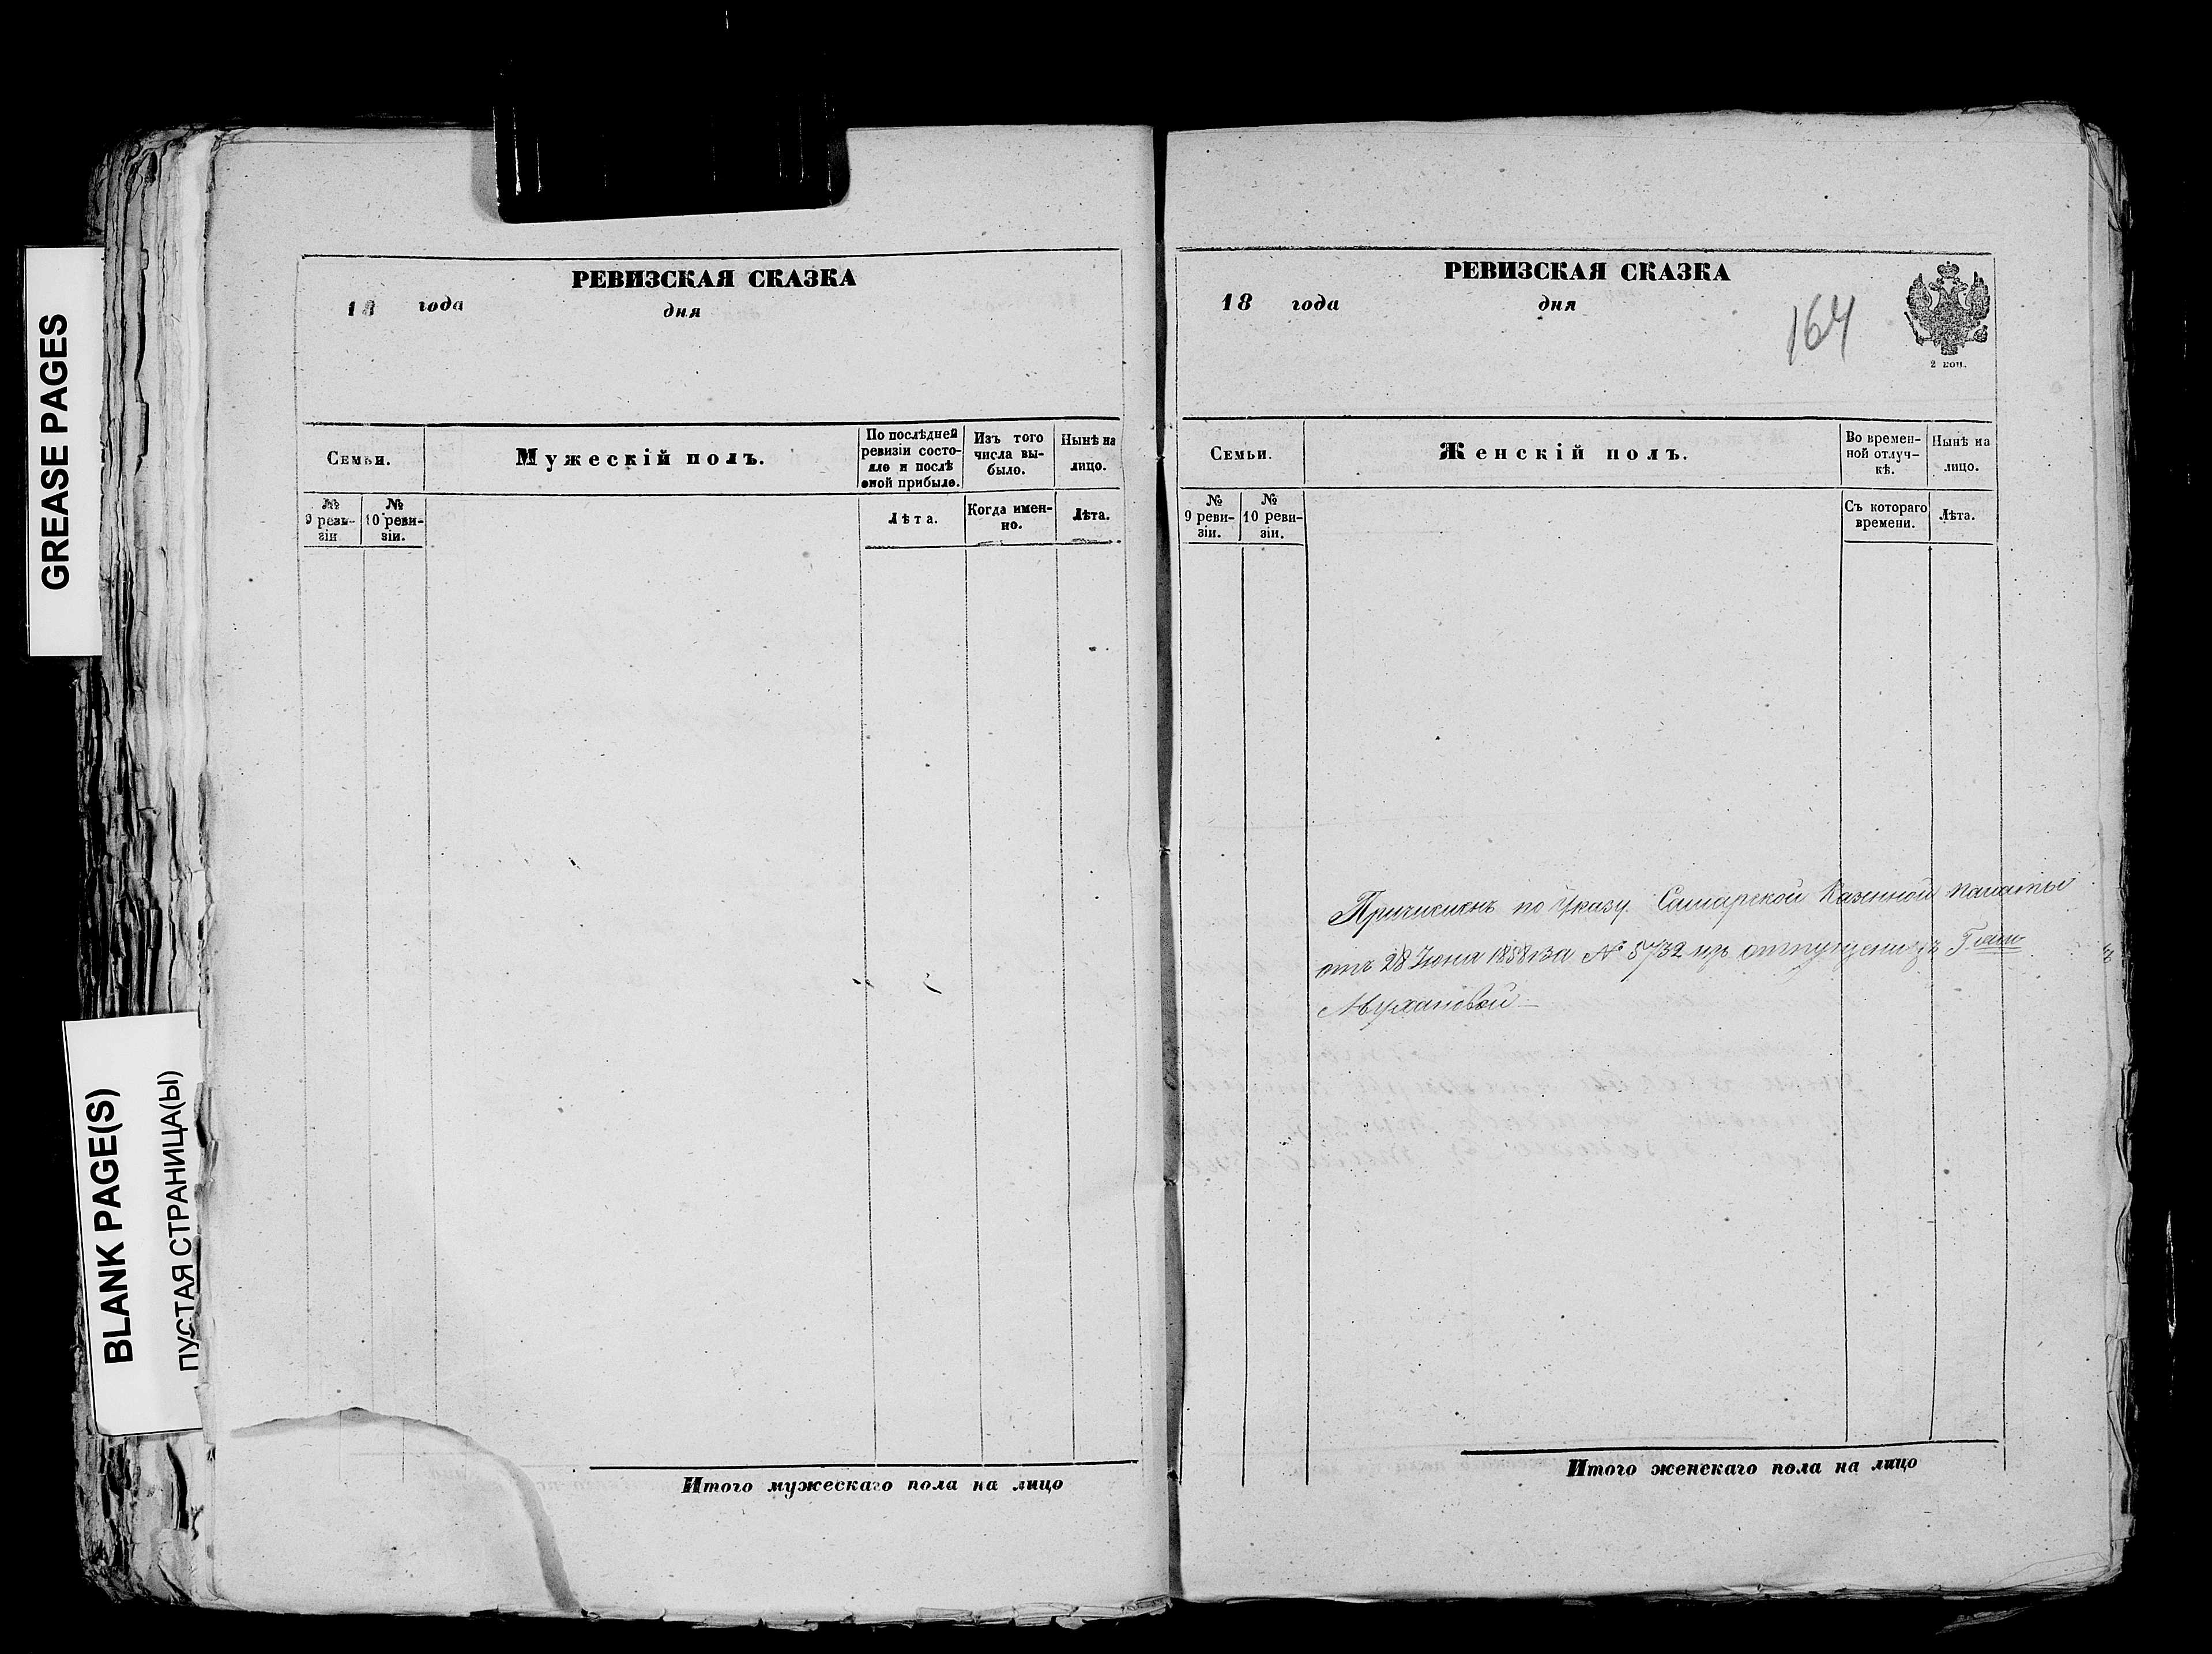 GREASE PAGES
BLANK PAGE(S)
ПУСТАЯ СТРАНИЦА(Ы)
РЕВИЗСКАЯ СКАЗКА
18 года дня
Семьи.
Мужескій полъ.
По послѣдней ревизіи состояло и послѣ оной прибыло.
Изъ того числа выбыло.
Нынѣ на лицо.
№ 9 ревизіи
№ 10 ревизіи.
Лѣта.
Когда именно.
Лѣта.
Итого мужескаго пола на лицо
РЕВИЗСКАЯ СКАЗКА
18 года дня
164
2 коп.
Семьи.
Женскій полъ.
Во временной отлучкѣ.
Нынѣ на лицо.
№ 9 ревизіи.
№ 10 ревизіи.
Съ котораго времени.
Лѣта.
Причисленъ по Указу Самарской Казенной палаты
отъ 28 Іюня 1858 за № 5732 изъ отпущенныхъ
Мухановой
Итого женскаго пола на лицо